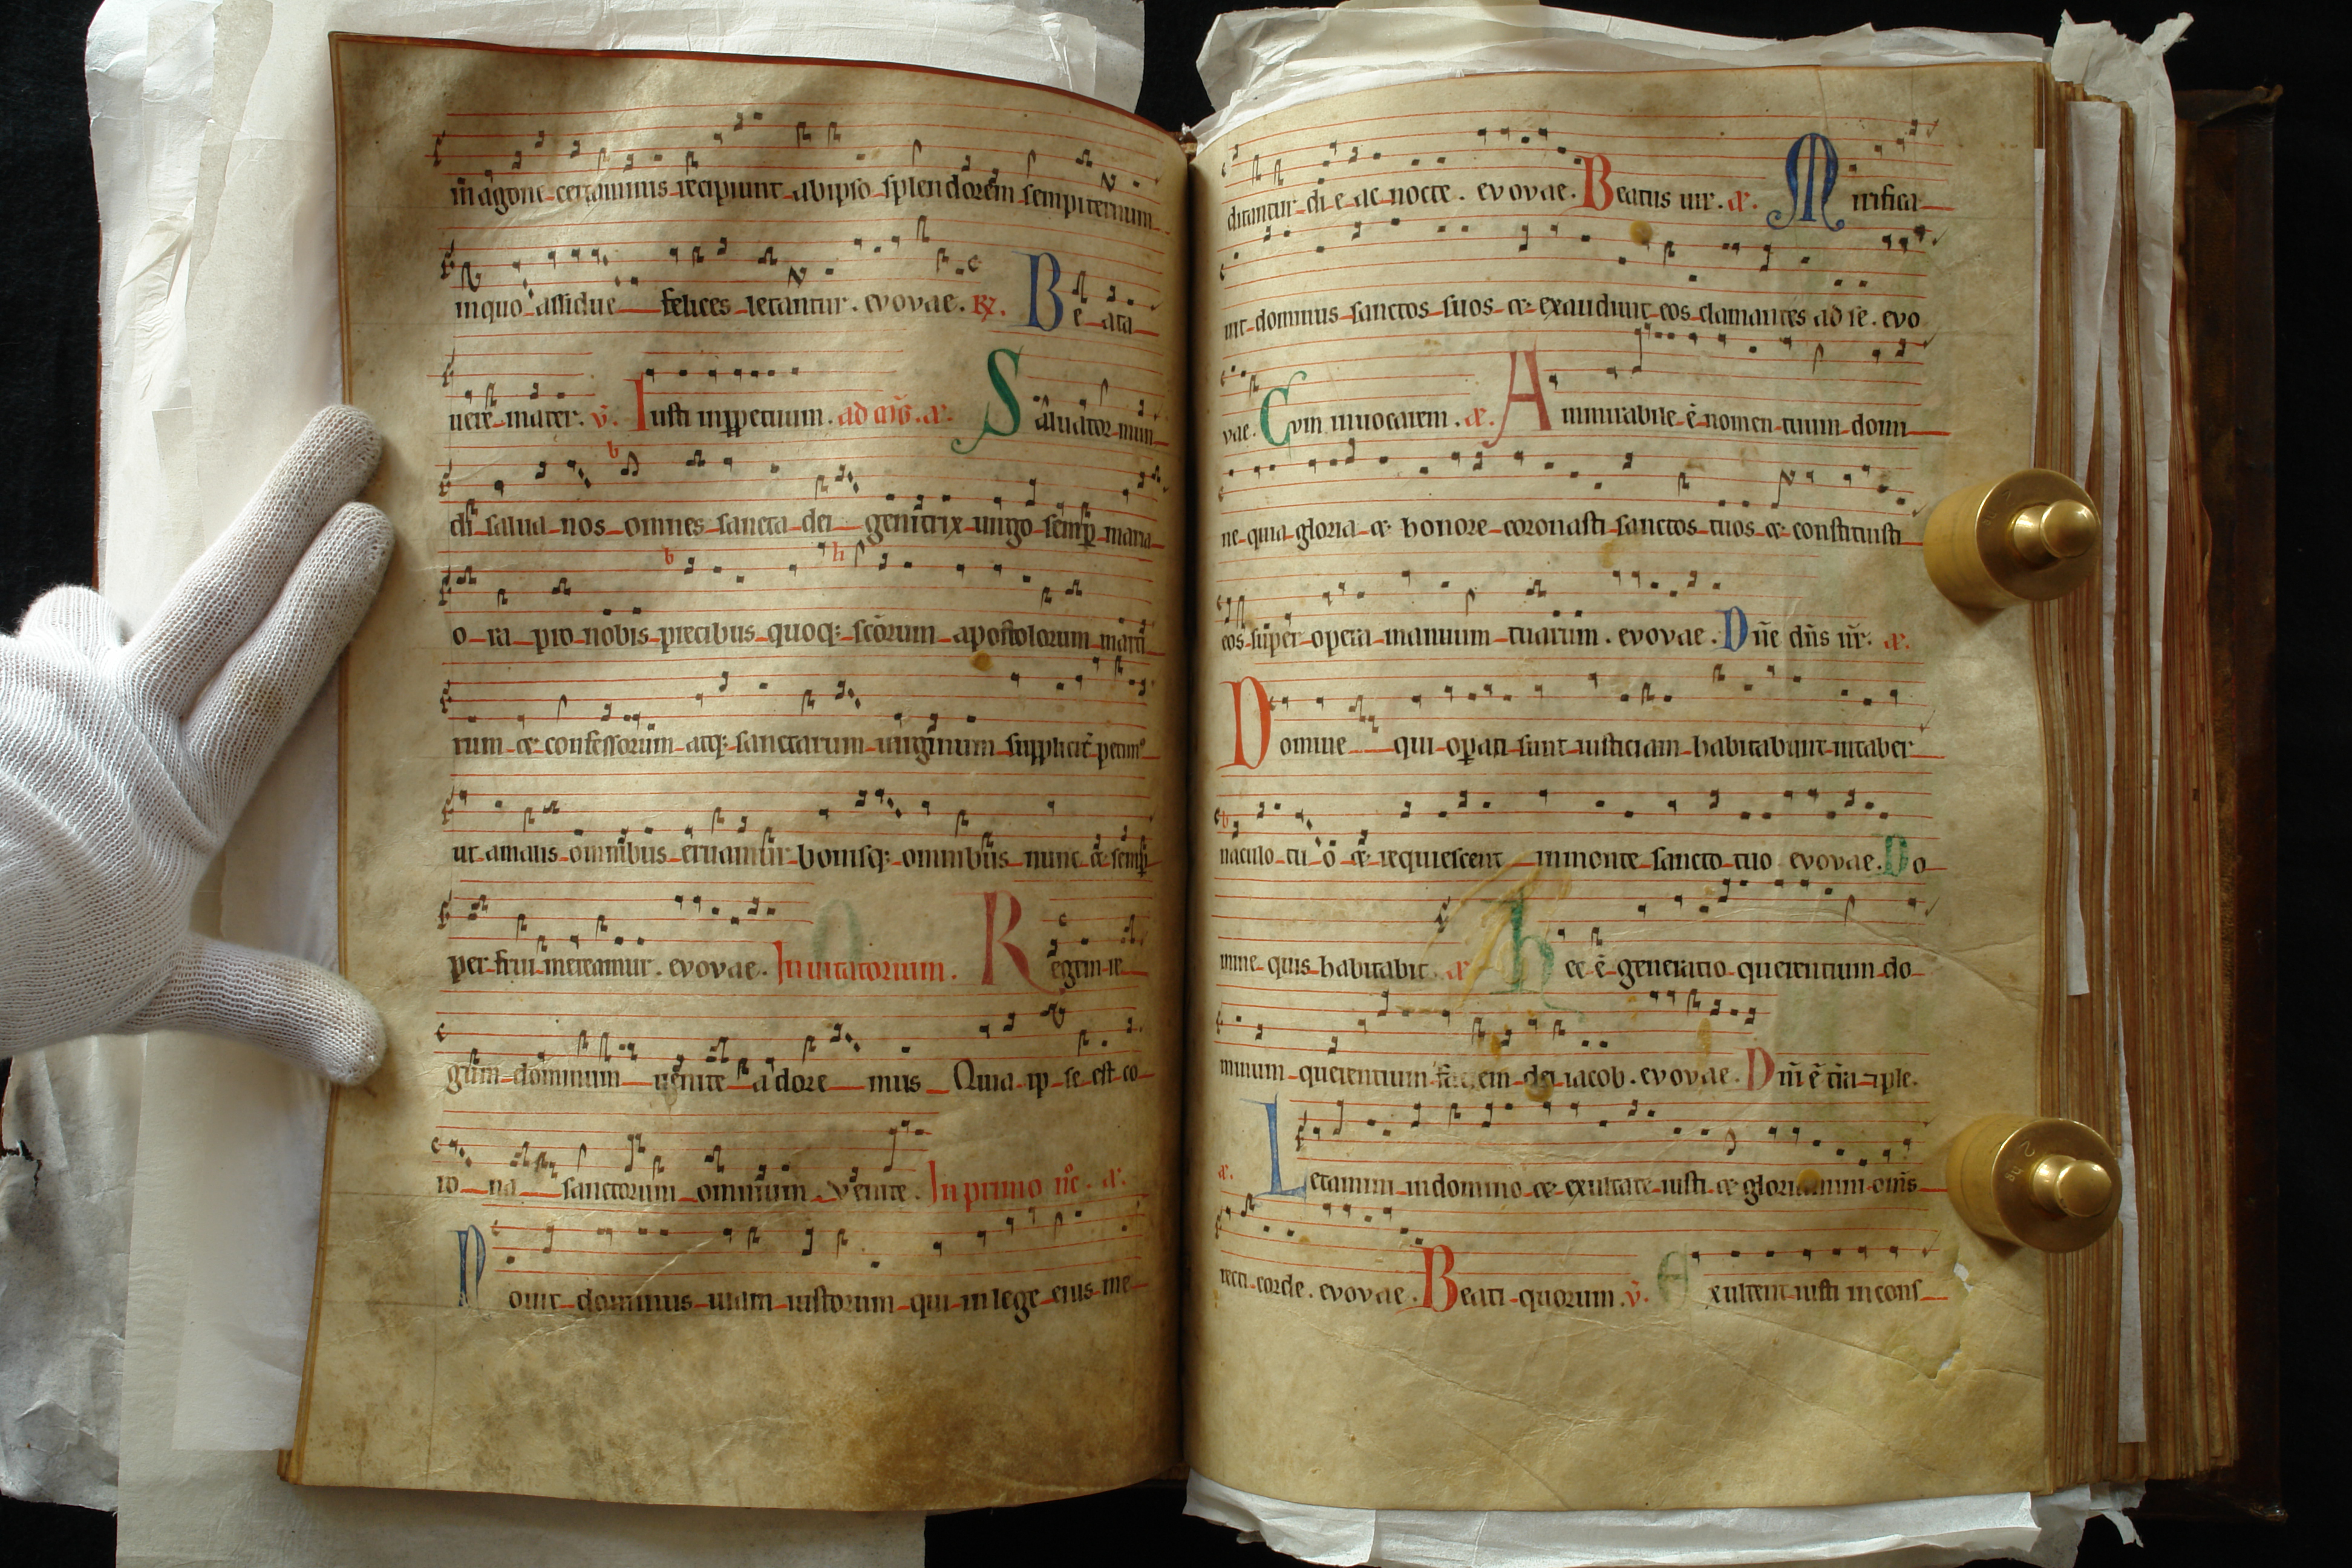 in agone certaminis recipiunt ab ipso splendorem sempiternum
inquo assidue felices letantur. evovae. R. Beata
vere mater. v. Iusti inpperuum. ad mag. a. Saluator mun
di salua nos omnes sancta dei genitrix uirgo semp maria
ora pro nobis precibus quoq; scorum apostolorum marti
rum et confessorum atq; sanctarum uirginum suppliciter petim
ut a malis omnibus eruamur bonisq; omnibus nunc et sem
per frui mereamur. evovae. Inuitatorium. Regem re
gum dominum uenite adoremus Quia ipse est co
rona sanctorum omnium Venite. In primo nc. a.
Nouit dominus uiam iustorum qui in lege eius me
ditantur die ac nocte. evovae. Beatus uir. a. Mirifica
uit dominus sanctos suos et exaudiuit eos clamantes ad se. evo
vae. Cvm inuocarem. a. Ammirabile e nomen tuum domi
ne quia gloria et honore coronasti sanctos tuos et constituisti
eos super opera manuum tuarum. evovae. Dne dns nr. a.
Domine qui opati sunt iusticiam habitabunt in taber
naculo tuo et requiescent in monte sancto tuo evovae. Do
mine quis habitabit a hec e generatio querentium do
minum querentium faciem dei iacob. evovae. Dni e tra iple.
a. Letamini in domino et exultate iusti et gloriamini oms
recti corde. evovae. Beati quorum. v. Exultent iusti in cons